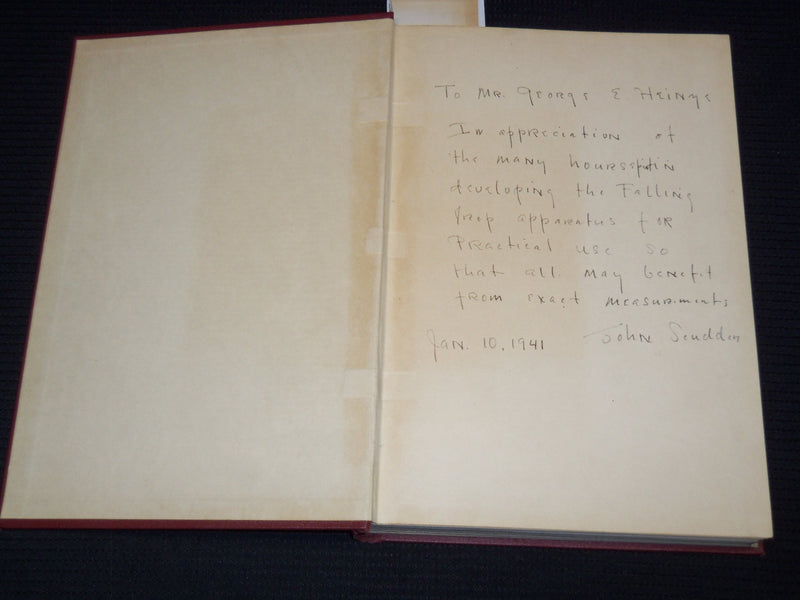 To Mr. George E. Heinys
In appreciation of
the many hours spent in
developing the Falling
Drop apparatus for
Practical use so
that all may benefit
from exact measurments
Jan. 10, 1941 John Scudder